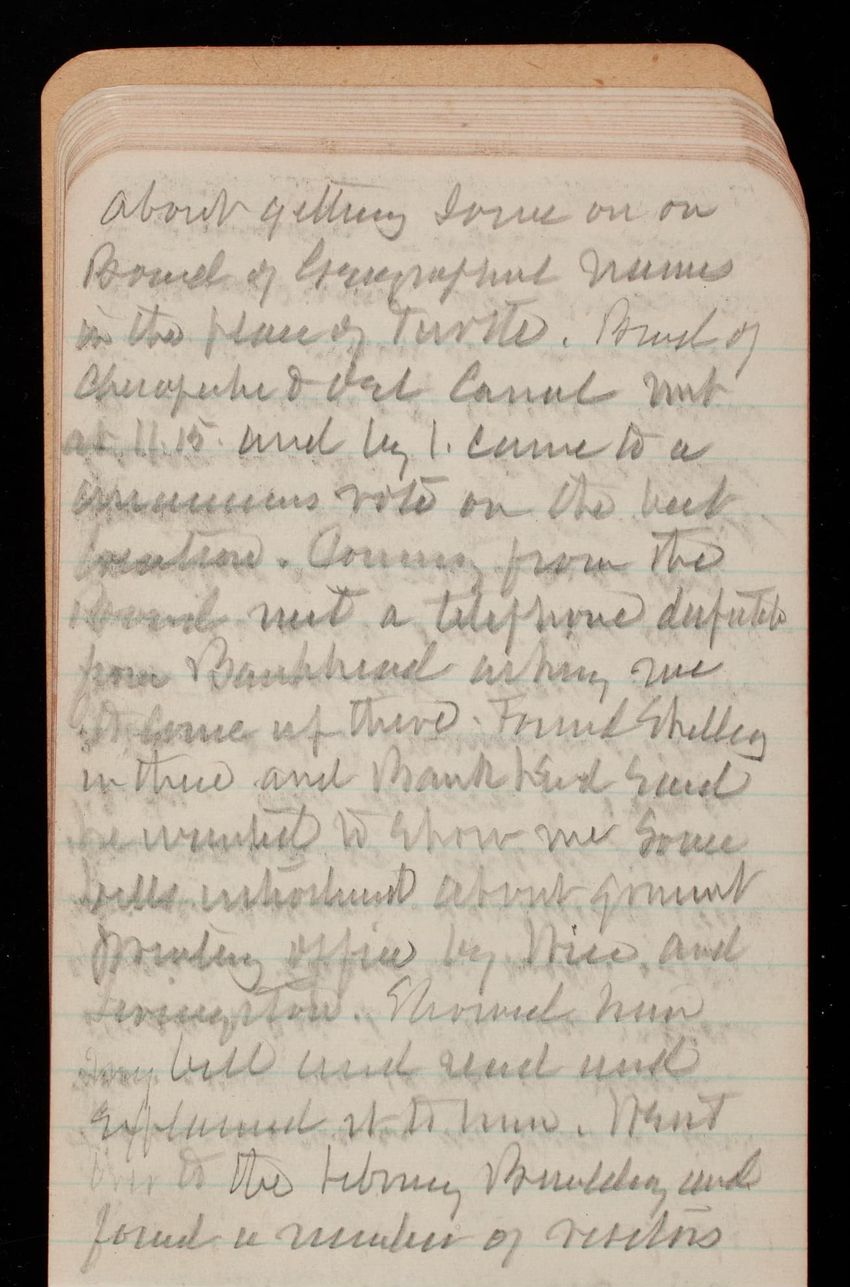 about getting some one on
Board of Geographical Names
in the place of Turtle. Board of
Chesapeake & Del Canal met
at 11.15 and by 1. came to a
unanimous vote on the best
location. Coming from the
Board met a telephone
from Bankhead asking me
to come up there. Found Shelley
in there and Bankhead said
he wanted to show me some
bills introduced about
printing office by and
Livingston. Showed him
my bill and read and
explained it to him. Went
to the Library Building and
found a number of visitors